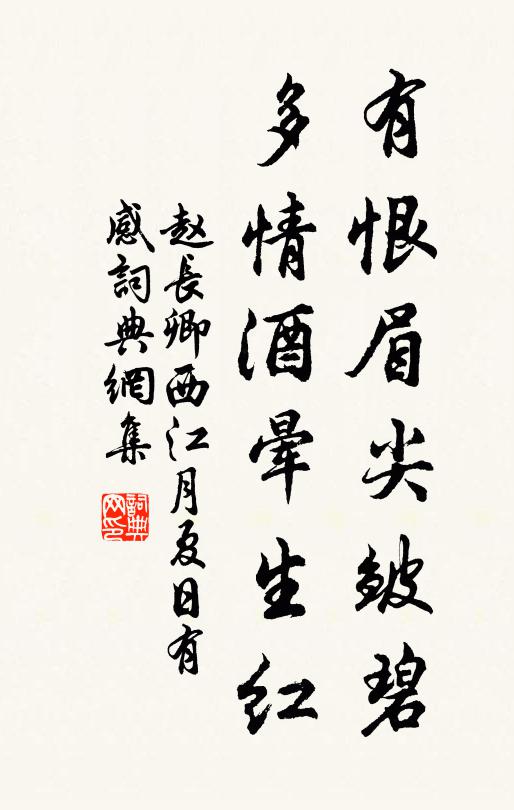 有恨眉尖皱碧
多情酒晕生红
赵长卿西江月夏日有
感詞典網集
詞典
网印